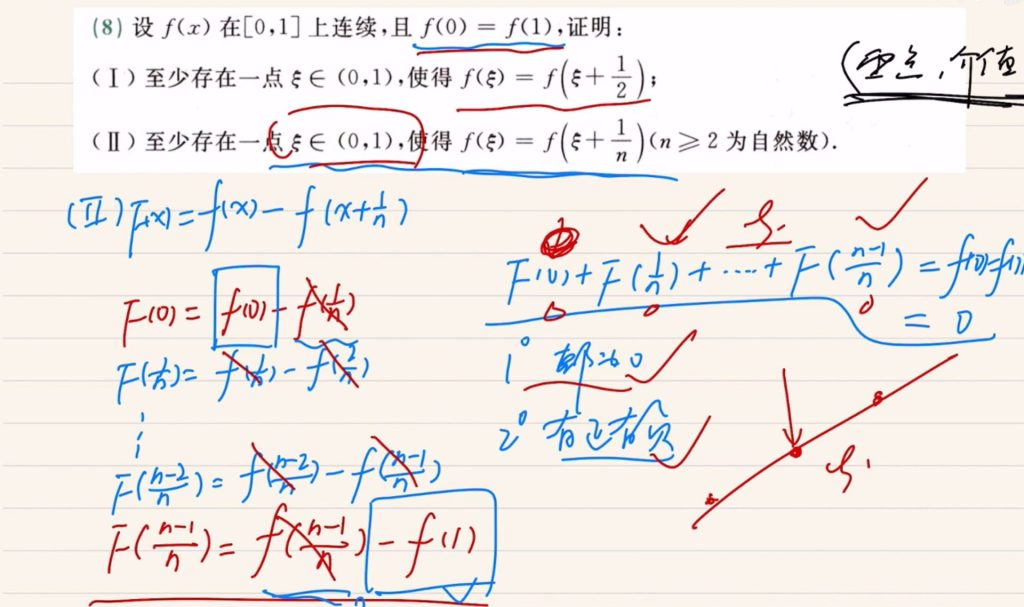 (8) 设 f(x) 在[0,1]上连续,且 f(0) = f(1),证明:
(Ⅰ) 至少存在一点 ξ ∈ (0,1),使得 f(ξ) = f(ξ + 1/2);
(零点,介值
(Ⅱ) 至少存在一点 ξ ∈ (0,1),使得 f(ξ) = f(ξ + 1/n)(n ⩾ 2 为自然数).
(Ⅱ) F(x) = f(x) - f(x+1/n)
F(0) = f(0) - f(1/n)
F(1/n) = f(1/n) - f(2/n)
⋮
F(n-2/n) = f(n-2/n) - f(n-1/n)
F(n-1/n) = f(n-1/n) - f(1)
ξ.
F(0) + F(1/n) + ⋯ + F(n-1/n) = f(0)-f(1)
0 0 0
= 0
1° 都为0
2° 有正有负
ξ.